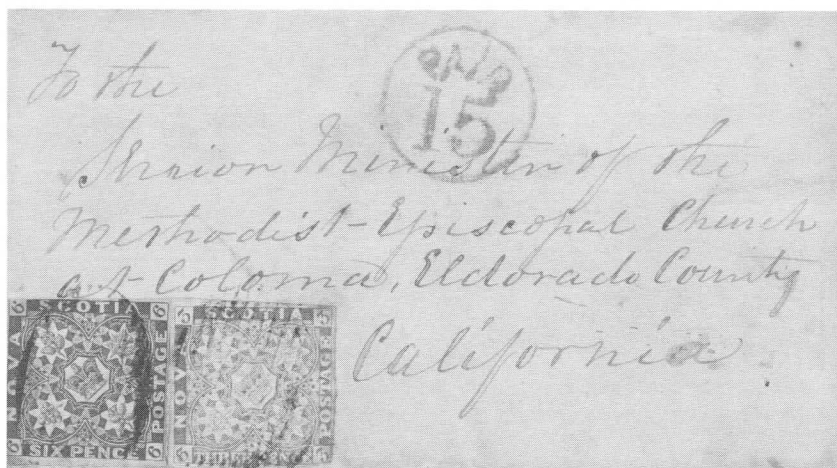 PAID
15
To the
Senior Minister of the
Methodist-Episcopal Church
at Coloma, Eldorado County
California
NOVA SCOTIA POSTAGE SIX PENCE
6 6 6 6
NOVA SCOTIA POSTAGE THREE PENCE
3 3 3 3